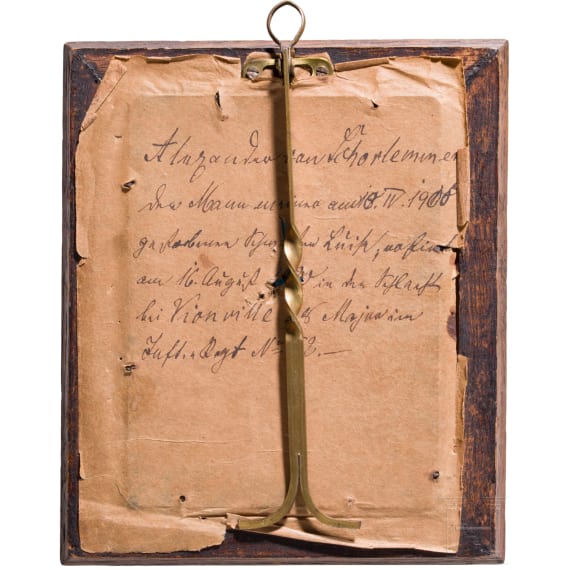 Alexander von Schorlemmer
der Mann meiner am 18. IV. 1906
gestorbenen Luise,
am 16. August in der Schlacht
bei Vionville als Major im
Inftr. Regt No 2. —